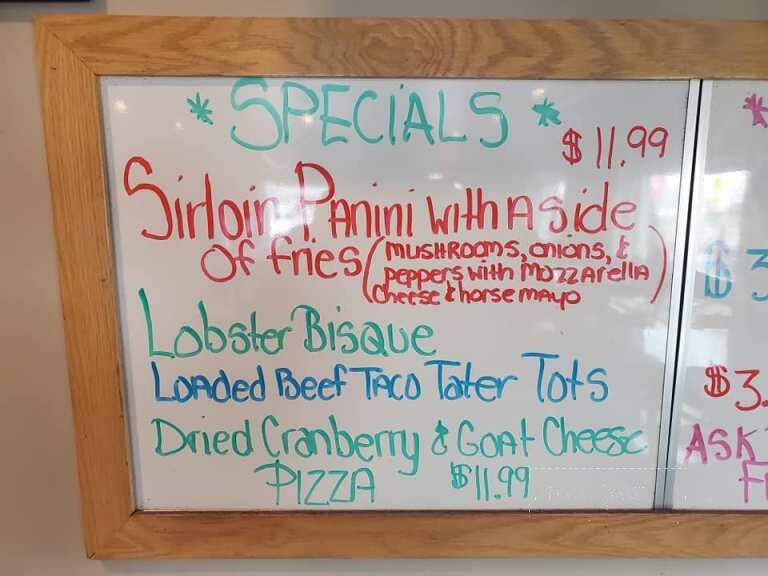 * SPECiALS *
$11.99
Sirloin PANini with A side
of fries (MUSHROOMS, onions, &
peppers with MOZZArellA
Cheese & horse MAyo)
Lobster Bisque
LoAded Beef TACO Tater Tots
Dried Cranberry & GOAt Cheese
PIZZA $11.99
*
$3
$3.
ASK